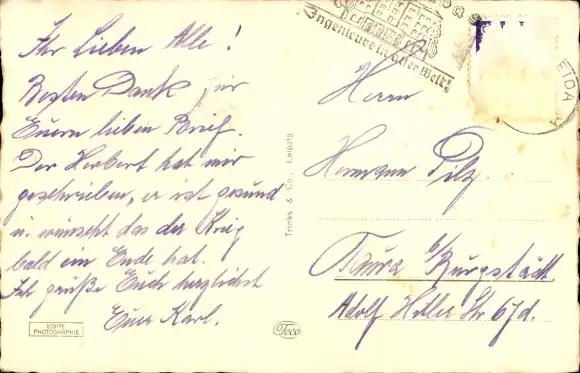 Ihr Lieben Alle!
Besten Dank für
Euern lieben Brief.
Der Herbert hat mir
geschrieben, er ist gesund
u. wünscht das der Krieg
bald ein Ende hat.
Ich grüße Euch herzlichst
Euer Karl.
ECHTE
PHOTOGRAPHIE
Trinks & Co., Leipzig
Teco
Ingenieure in aller Welt!
EIDA
Herrn
Hermann Pilz
Taura b/Burgstädt
Adolf Hitler Str 67d.